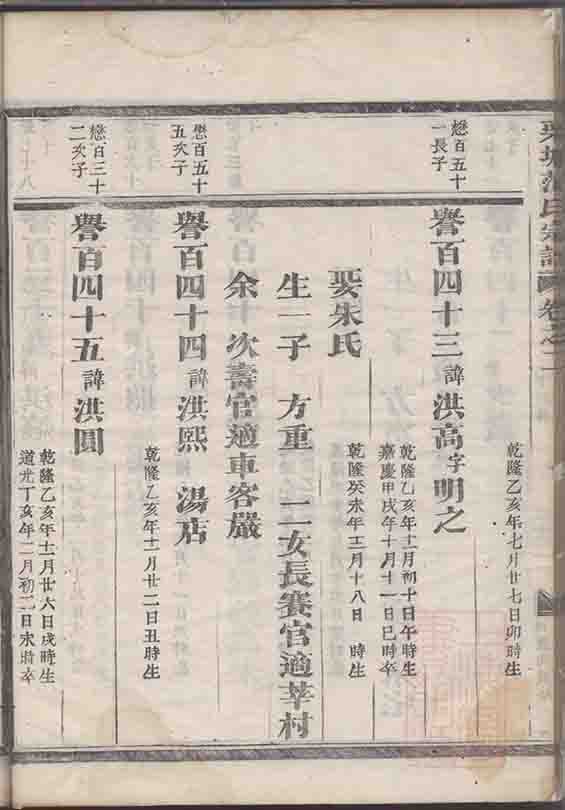 氏宗譜 卷之二
乾隆乙亥年七月廿七日卯時生
懋百五十
一長子
譽百四十三諱洪高字明之
乾隆乙亥年十二月初十日午時生
嘉慶甲戌年十月十一日巳時卒
娶朱氏
乾隆癸未年十二月十八日 時生
生一子 方重 二女長賽官適莘村
余 次壽官適車客嚴
懋百五十
五次子
譽百四十四諱洪熙 湯店
乾隆乙亥年十二月廿二日丑時生
懋百三十
二次子
譽百四十五諱洪圓
乾隆乙亥年十二月廿六日戌時生
道光丁亥年二月初二日未時卒